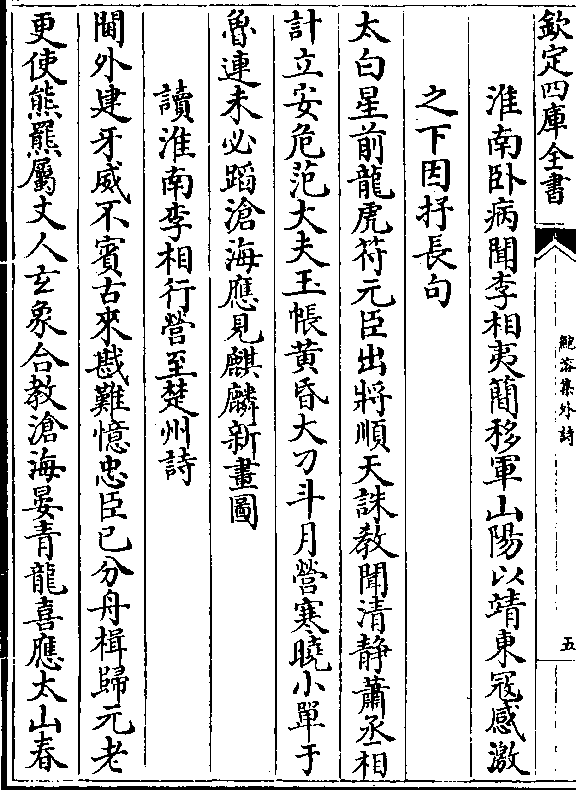 欽定四庫全書
鮑溶集外詩
五
淮南卧病聞李相夷簡移軍山陽以靖東冦感激
之下因抒長句
太白星前龍虎符元臣出將順天誅敎聞清静蕭丞相
計立安危范大夫玉帳黄昏大刀斗月營寒曉小單于
魯連未必蹈滄海應見麒麟新畫圖
讀淮南李相行營至楚州詩
閫外建牙威不賓古來戡難憶忠臣已分舟楫歸元老
更使熊羆屬丈人玄象合教滄海晏青龍喜應太山春